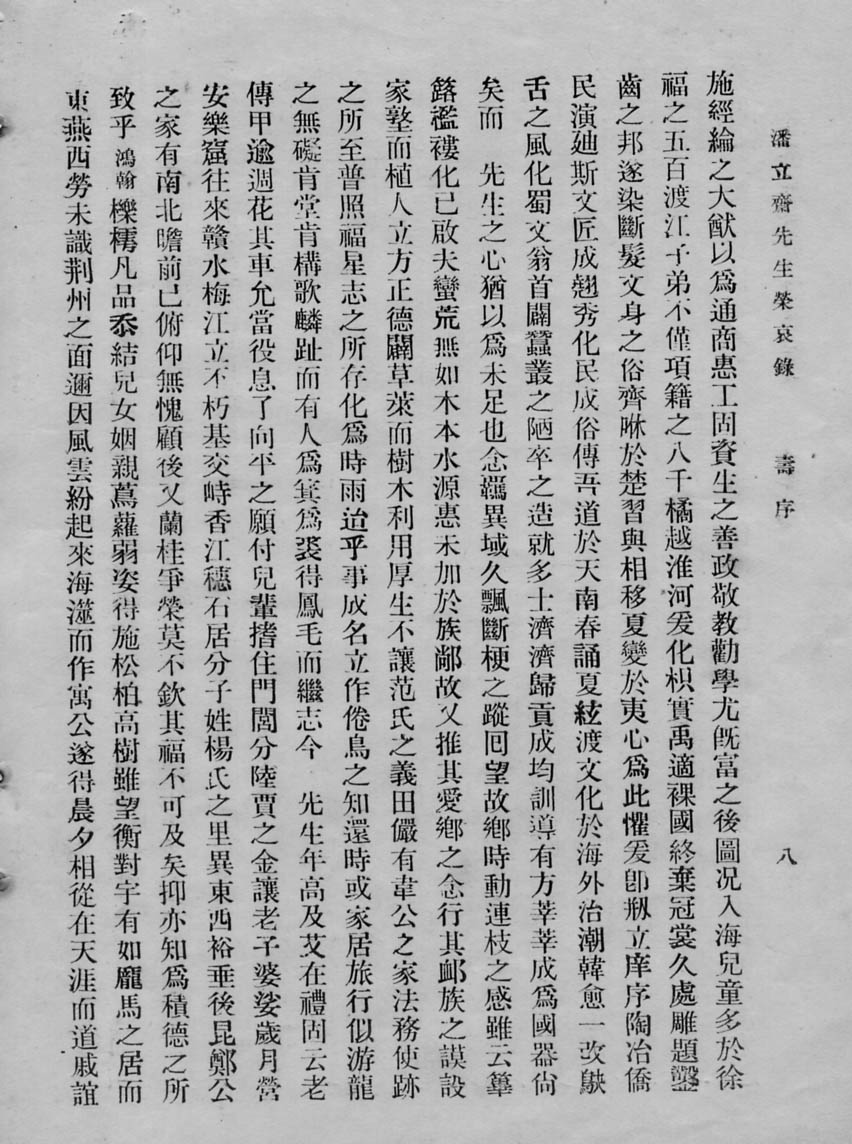 潘立齋先生榮哀錄 壽序 八
施經綸之大猷以爲通商惠工固資生之善政敬教勸學尤旣富之後圖况入海兒童多於徐
福之五百渡江子弟不僅項籍之八千橘越淮河爰化枳實禹適裸國終棄冠裳久處雕題鑿
齒之邦遂染斷髮文身之俗齊咻於楚習與相移夏變於夷心爲此懼爰卽剏立庠序陶冶僑
民演廸斯文匠成翹秀化民成俗傳吾道於天南春誦夏絃渡文化於海外治潮韓愈一改鴃
舌之風化蜀文翁首闢蠶叢之陋卒之造就多士濟濟歸貢成均訓導有方莘莘成爲國器尙
矣而 先生之心猶以爲未足也念羈異域久飄斷梗之蹤回望故鄕時動連枝之感雖云篳
路襤褸化已啟夫蠻荒無如木本水源惠未加於族鄰故又推其愛鄕之念行其卹族之謨設
家塾而植人立方正德闢草萊而樹木利用厚生不讓范氏之義田儼有韋公之家法務使跡
之所至普照福星志之所存化爲時雨迨乎事成名立作倦鳥之知還時或家居旅行似游龍
之無礙肯堂肯構歌麟趾而有人爲箕爲裘得鳳毛而繼志今 先生年高及艾在禮固云老
傳甲逾週花其車允當役息了向平之願付兒輩撐住門閭分陸賈之金讓老子婆娑歲月營
安樂窩往來贛水梅江立不朽基交峙香江穗石居分子姓楊氏之里異東西裕垂後昆鄭公
之家有南北瞻前已俯仰無愧顧後又蘭桂爭榮莫不欽其福不可及矣抑亦知爲積德之所
致乎鴻翰櫟樗凡品忝結兒女姻親蔦蘿弱姿得施松柏高樹雖望衡對宇有如龐馬之居而
東燕西勞未識荆州之面邇因風雲紛起來海澨而作寓公遂得晨夕相從在天涯而道戚誼